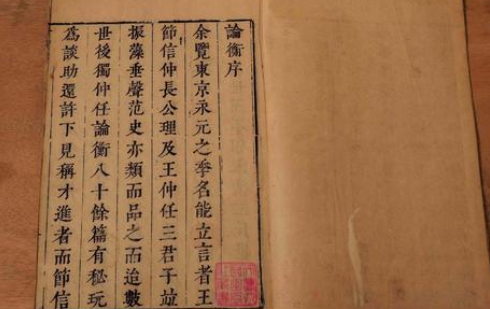 論衡序
余覽東京永元之季名能立言者王
節信仲長公理及王仲任三君子竝
振藻垂聲范史亦類而品之而迨數
世後獨仲任論衡八十餘篇有秘玩
爲談助還許下見稱才進者而節信